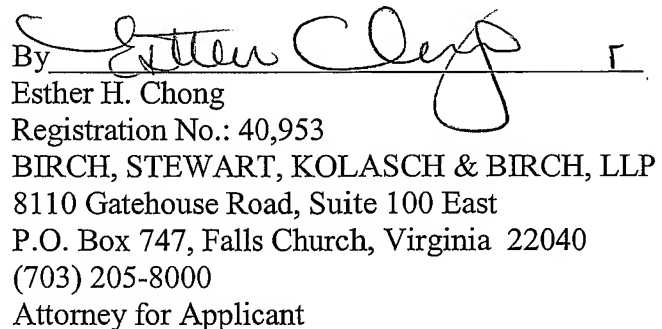 By Esther Chong
Esther H. Chong
Registration No.: 40,953
BIRCH, STEWART, KOLASCH & BIRCH, LLP
8110 Gatehouse Road, Suite 100 East
P.O. Box 747, Falls Church, Virginia 22040
(703) 205-8000
Attorney for Applicant